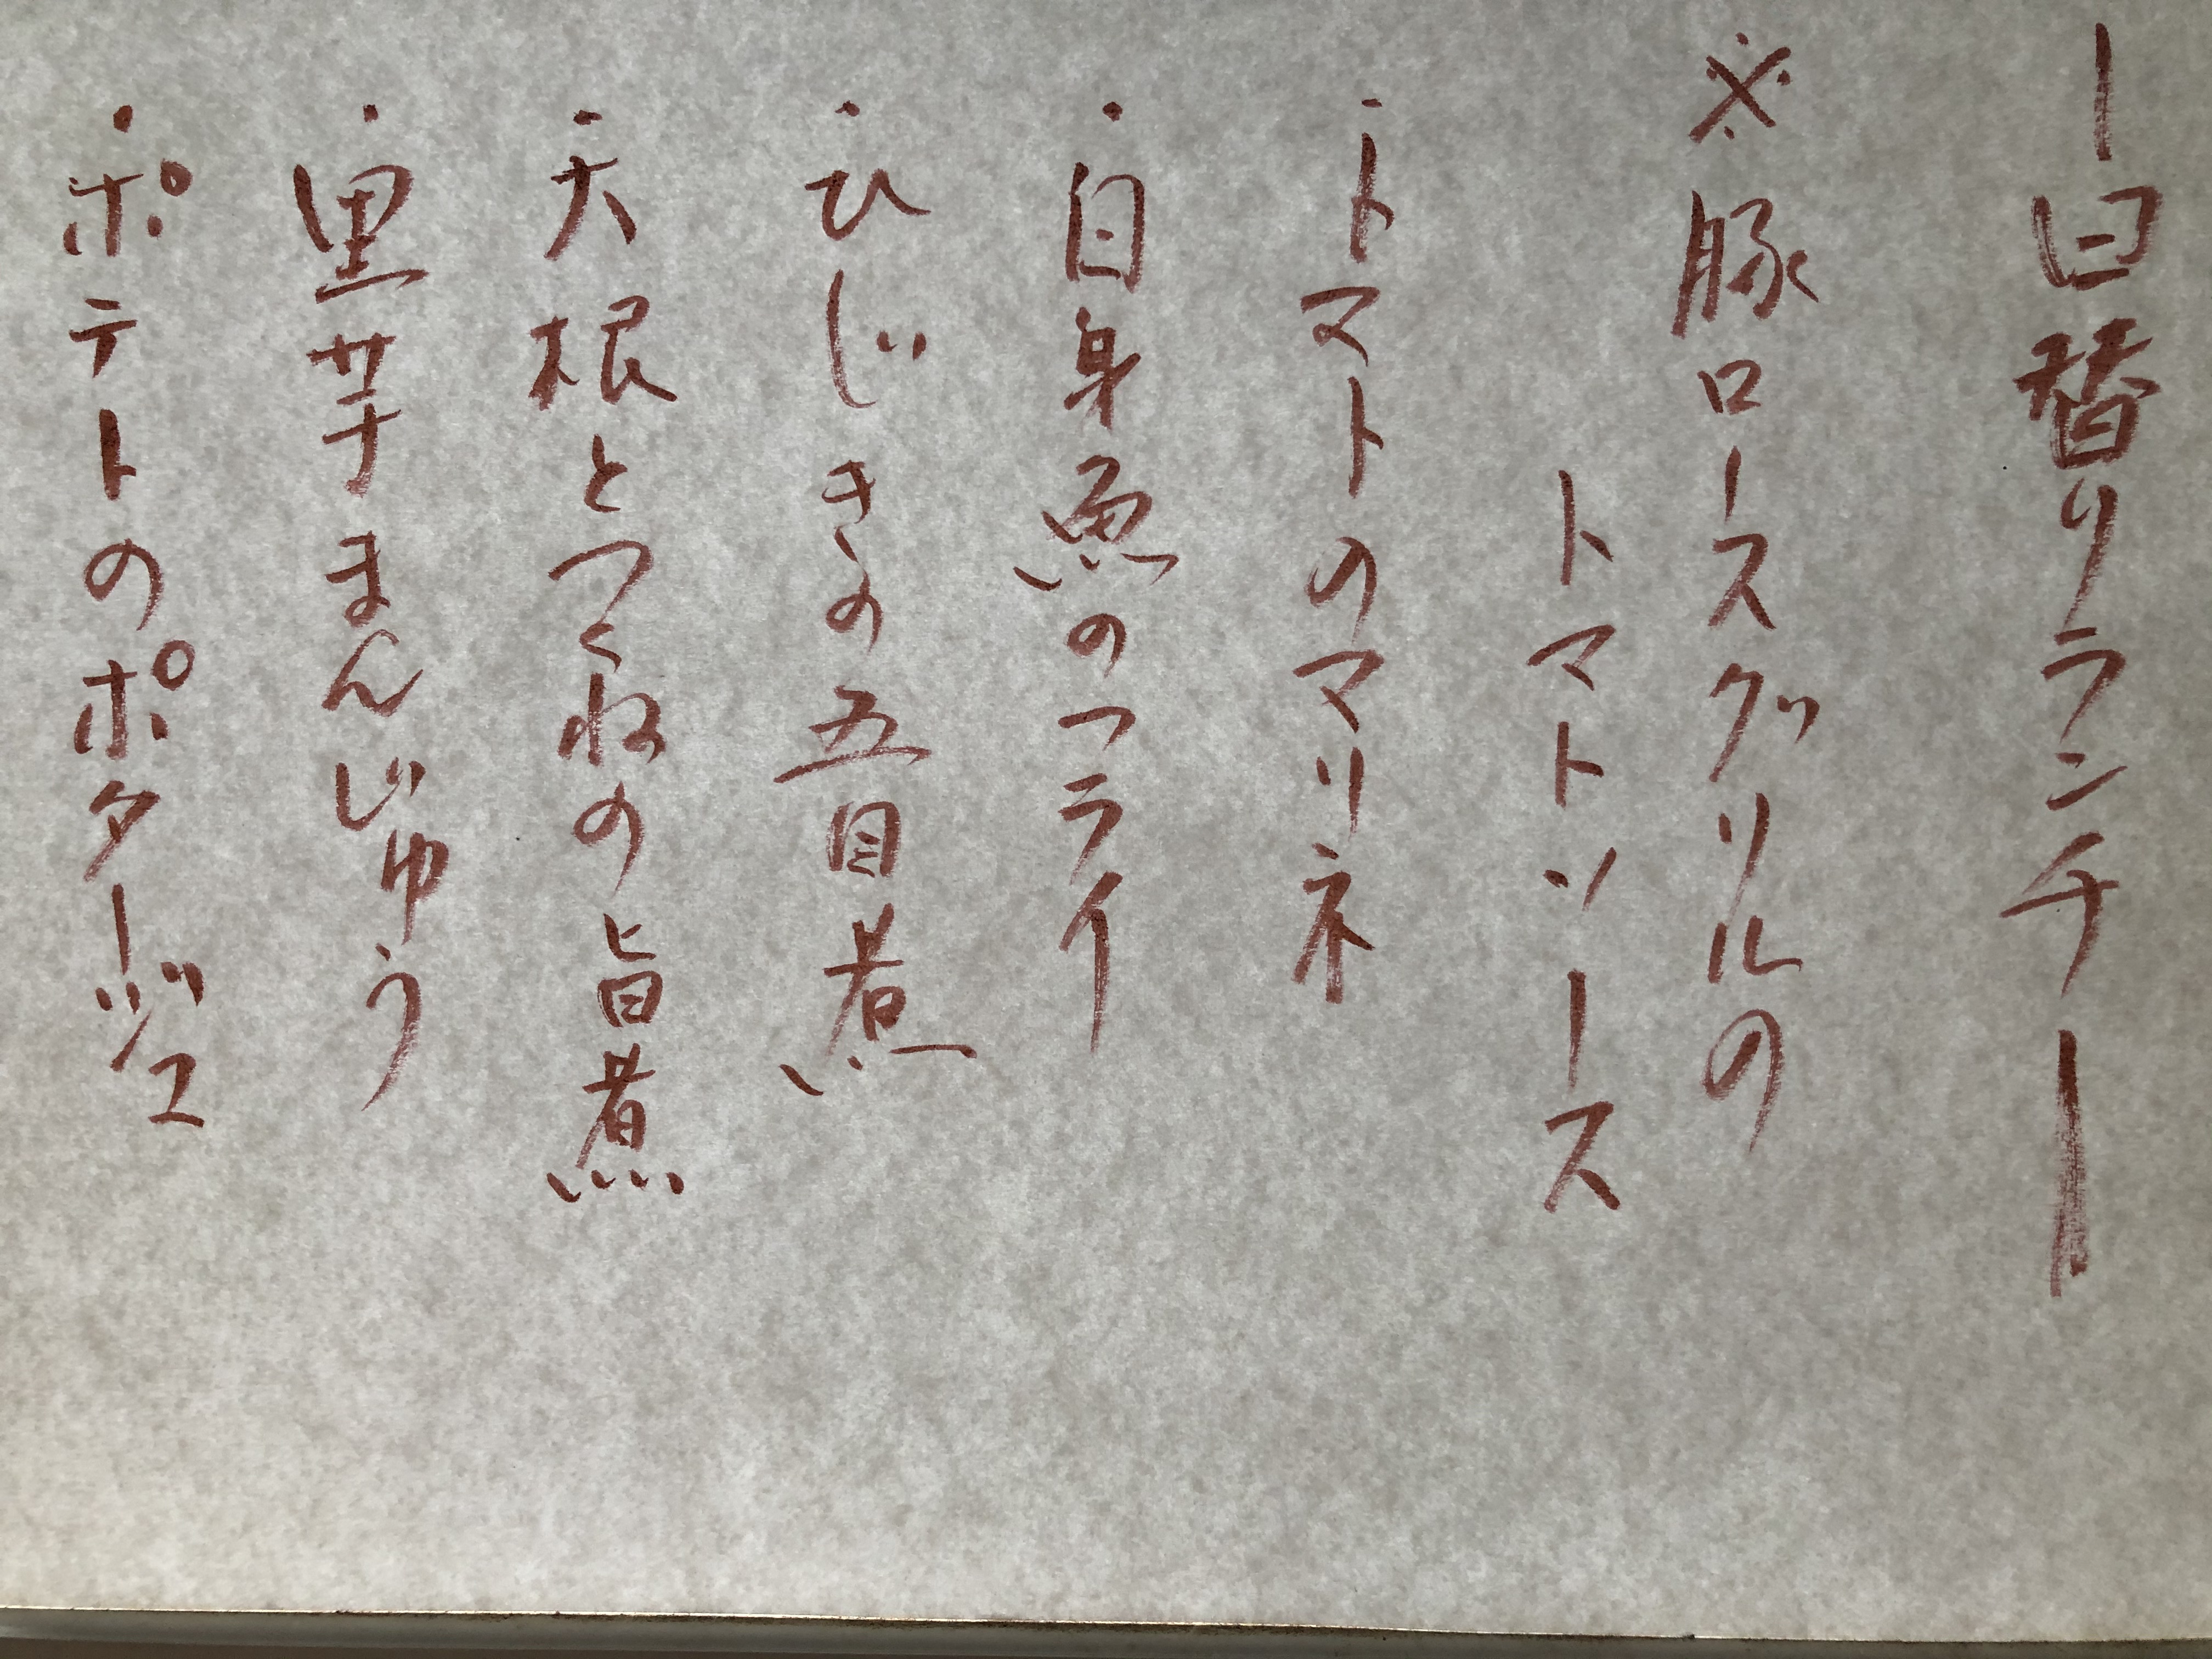 ー日替りランチー
※豚ロースグリルの
トマトソース
・トマトのマリネ
・白身魚のフライ
・ひじきの五目煮
・大根とつくねの旨煮
・里芋まんじゅう
・ポテトのポタージュ